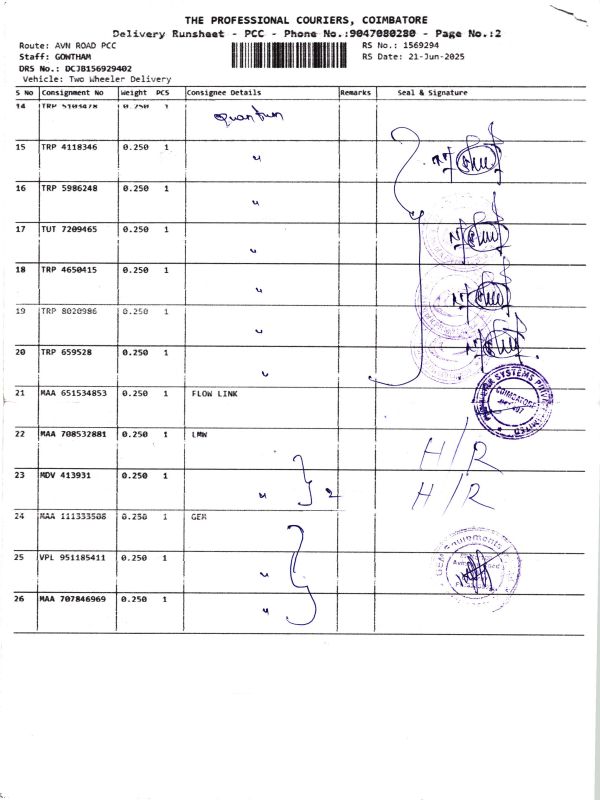 THE PROFESSIONAL COURIERS, COIMBATORE
Delivery Runsheet - PCC - Phone No.:9047080280 - Page No.:2
Route: AVN ROAD PCC
RS No.: 1569294
Staff: GOWTHAM
RS Date: 21-Jun-2025
DRS No.: DCJB156929402
Vehicle: Two Wheeler Delivery
S No Consignment No Weight PCS Consignee Details Remarks Seal & Signature
14 TRP 5103478 0.250 1 quantum
15 TRP 4118346 0.250 1 "
16 TRP 5986248 0.250 1 "
17 TUT 7209465 0.250 1 "
18 TRP 4650415 0.250 1 "
19 TRP 8020986 0.250 1 "
20 TRP 659528 0.250 1 "
21 MAA 651534853 0.250 1 FLOW LINK
COIMBATORE
22 MAA 708532881 0.250 1 LMW H/R
23 MDV 413931 0.250 1 " 2 H/R
24 MAA 111333508 0.250 1 GEM
25 VPL 951185411 0.250 1 "
26 MAA 707846969 0.250 1 "